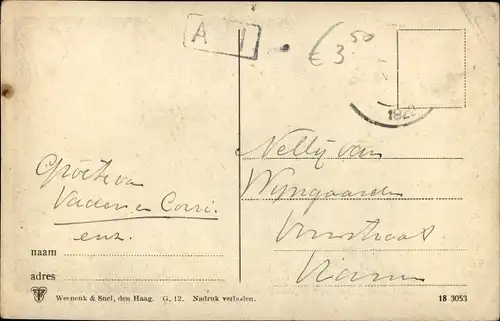 A
€ 3.50
Groeten van
Vader en Corrie
enz.
naam
adres
Weenenk & Snel, den Haag. G. 12. Nadruk verboden.
Nelly van
Wyngaarden
18 3053